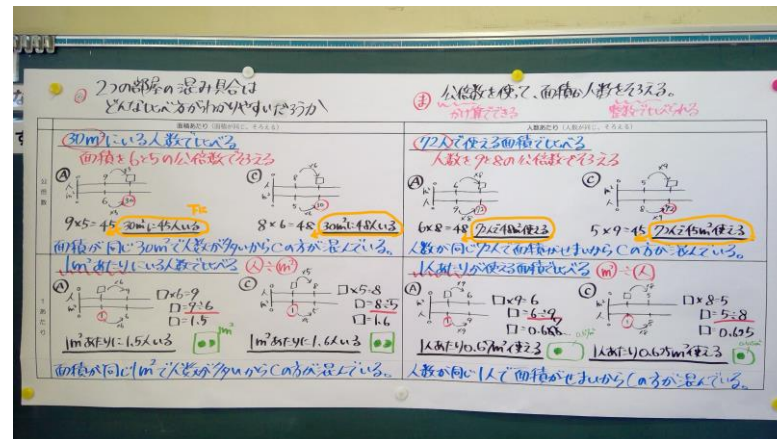 め 2つの部屋の混み具合は
どんな比べ方がわかりやすいだろうか
ま 公倍数を使って、面積か人数をそろえる。
かけ算でできる 整数でくらべられる
面積あたり(面積が同じ、そろえる)
人数あたり(人数が同じ、そろえる)
公倍数
30m²にいる人数でくらべる
面積を6と5の公倍数でそろえる
Ⓐ
9×5=45 30m²に45人いる
Ⓒ
8×6=48 30m²に48人いる
面積が同じ30m²で人数が多いからCの方が混んでいる。
72人で使える面積でくらべる
人数を9と8の公倍数でそろえる
Ⓐ
6×8=48 72人で48m²使える
Ⓒ
5×9=45 72人で45m²使える
人数が同じ72人で面積がせまいからCの方が混んでいる。
1あたり
1m²あたりにいる人数でくらべる 人÷m²
Ⓐ
□×6=9
□=9÷6
□=1.5
1m²あたりに1.5人いる
Ⓒ
□×5=8
□=8÷5
□=1.6
1m²あたりに1.6人いる
面積が同じ1m²で人数が多いからCの方が混んでいる。
1人あたりが使える面積でくらべる m²÷人
Ⓐ
□×9=6
□=6÷9
1人あたり0.67m²使える
Ⓒ
□×8=5
□=5÷8
□=0.625
1人あたり0.625m²使える
人数が同じ1人で面積がせまいからCの方が混んでいる。